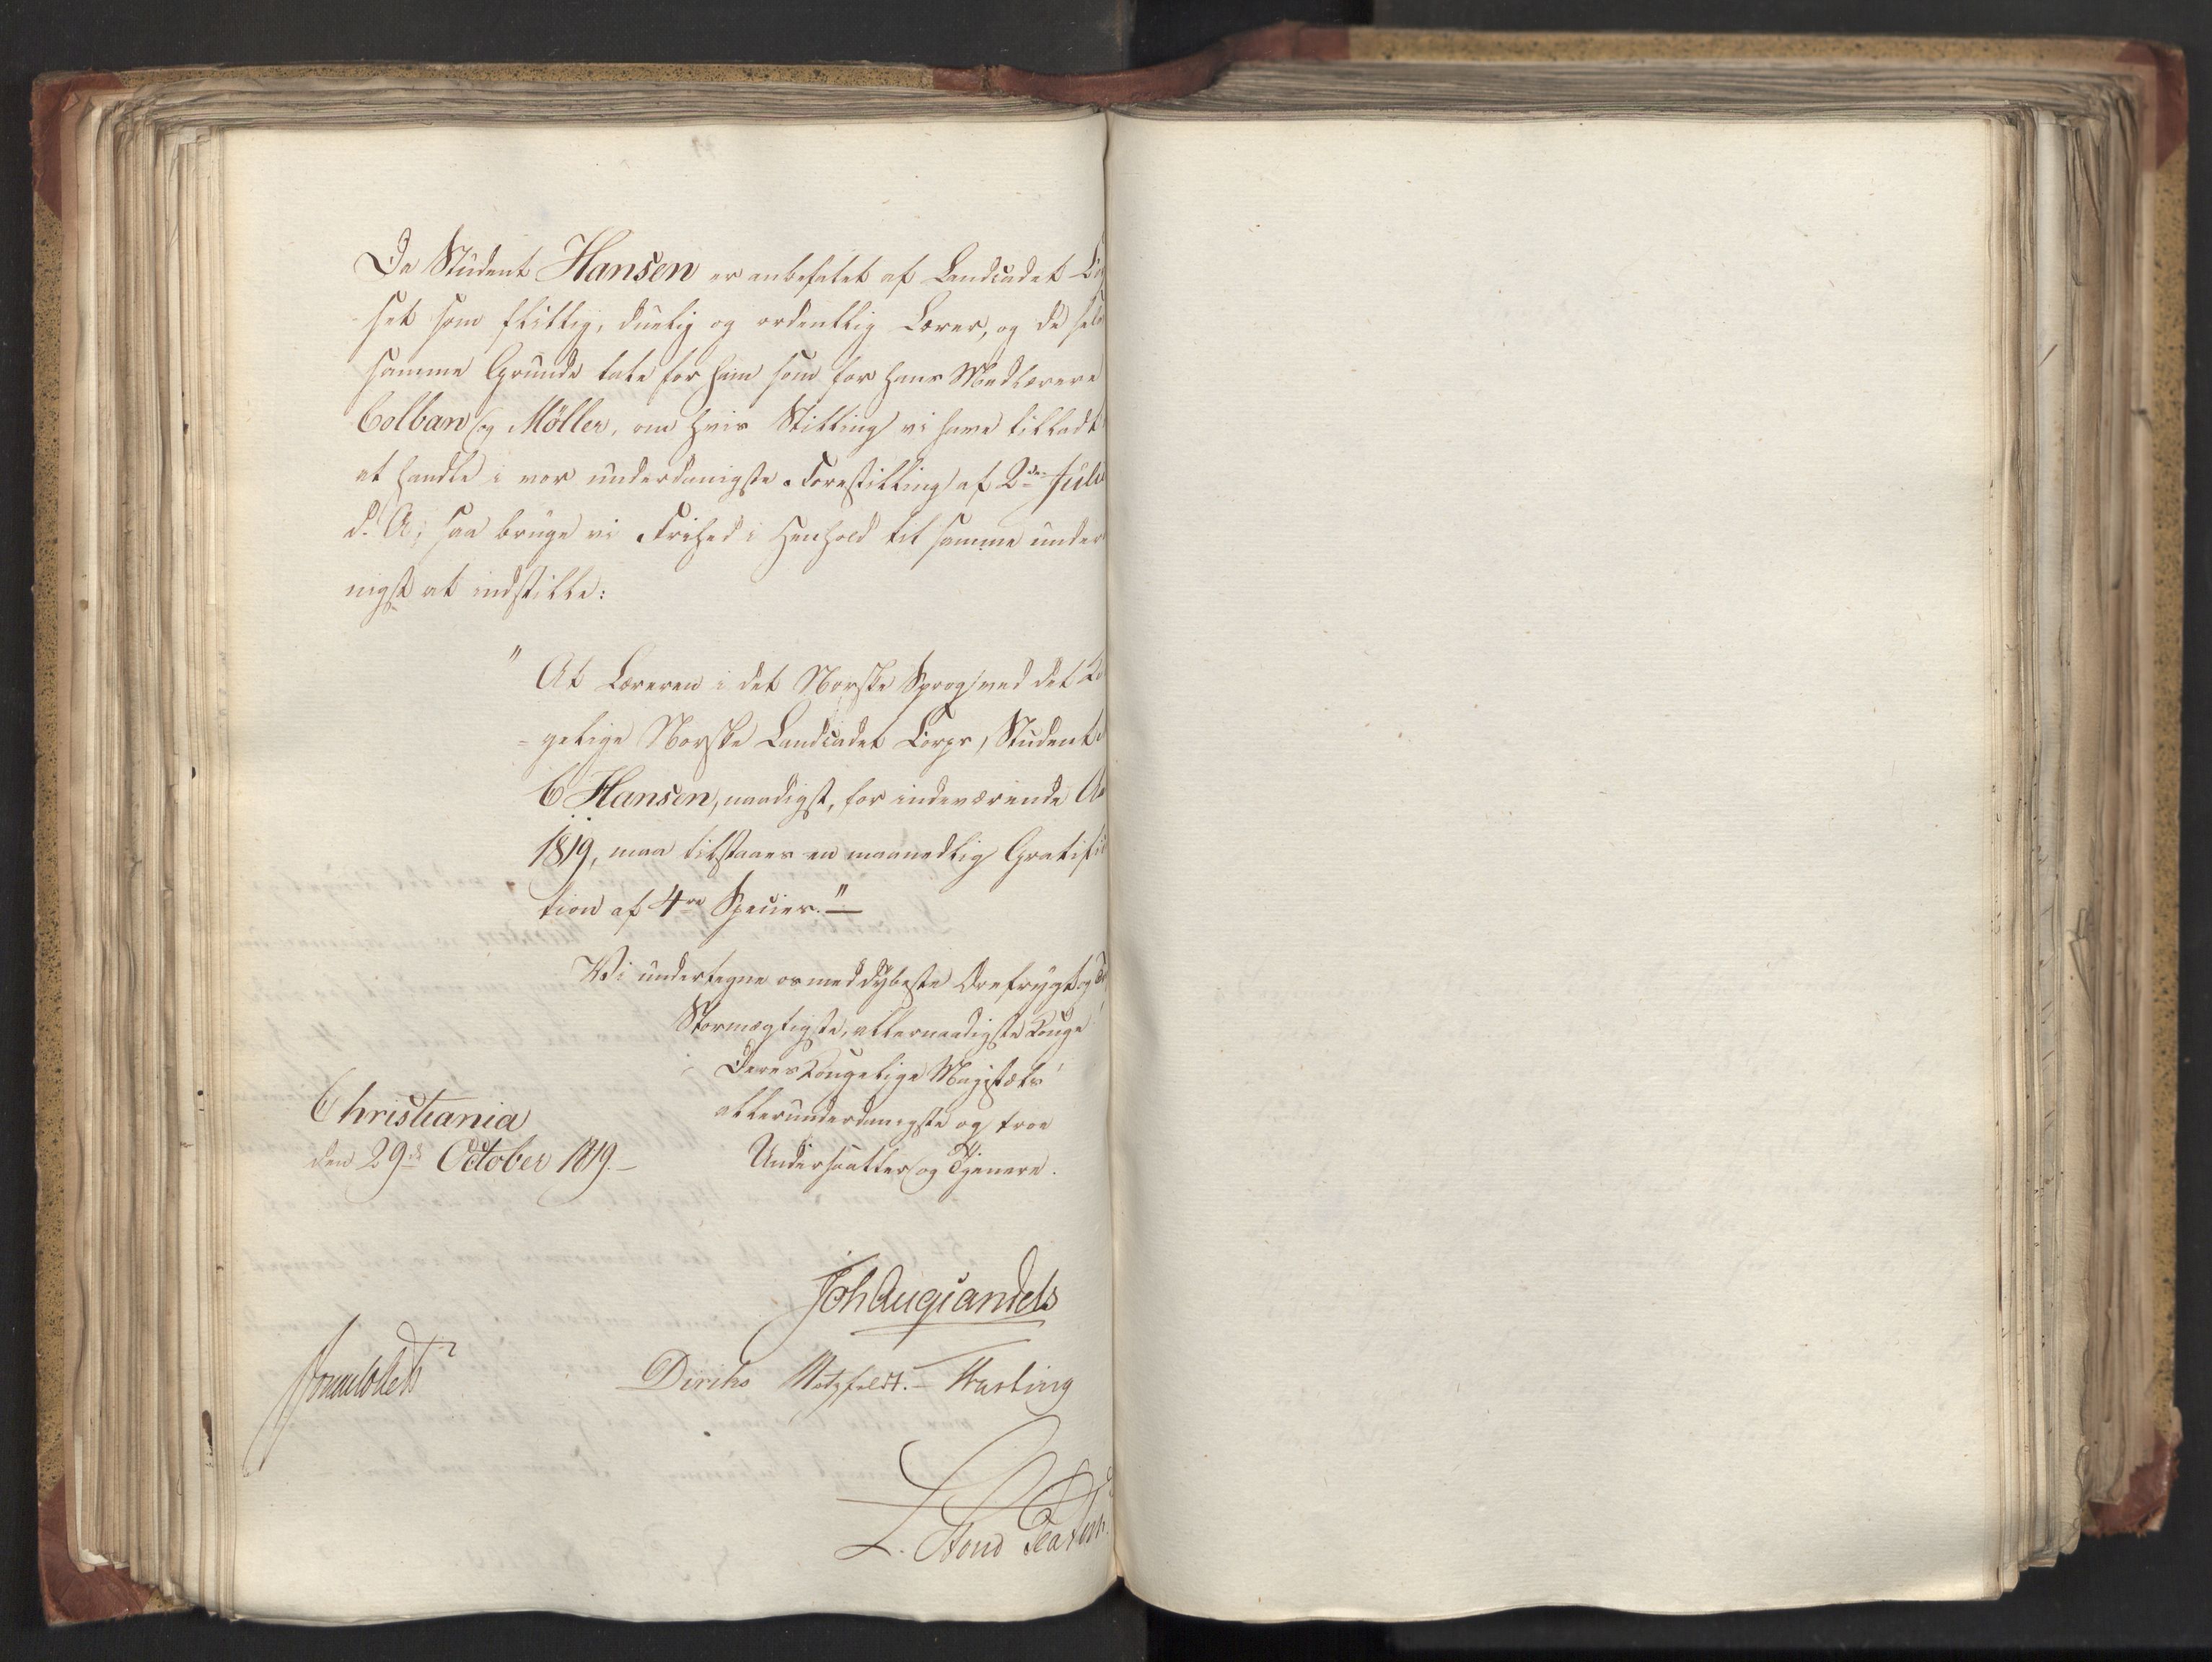 Da Student Hansen er anbefalet af Landcadet Co
set som flittig, duelig og ordentlig Lærer, og da sel
samme Grunde tale for ham som for hans Medlærere
Colban og Möller, om hvis Stilling vi have tilladt
at handle i vor underdanigste Forestilling af 2den Juli
d. A; saa bruge vi Frihed i Henhold til samme under
nigst at indstille:
" At Læreren i det Norske Sprog ved det Ko
- gelige Norske Landcadet Corps, Student
C Hansen, naadigst, for indeværende Aa
1819, maa tilstaaes en maanedlig Gratific
tion af 4re Specier." —
Vi undertegne os med dybeste Ærefrygt og
Stormægtigste, allernaadigste Konge!
Deres Kongelige Majestæts
allerunderdanigste og troe
Undersaatter og Tjenere.
Christiania
den 29de October 1819. —
Joh Aug Sandels
Diriks Motzfeldt. — Fasting
L. Stoud Platou